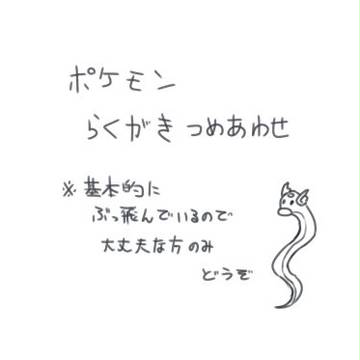 ポケモン
らくがき つめあわせ
※基本的に
ぶっ飛んでいるので
大丈夫な方のみ
どうぞ